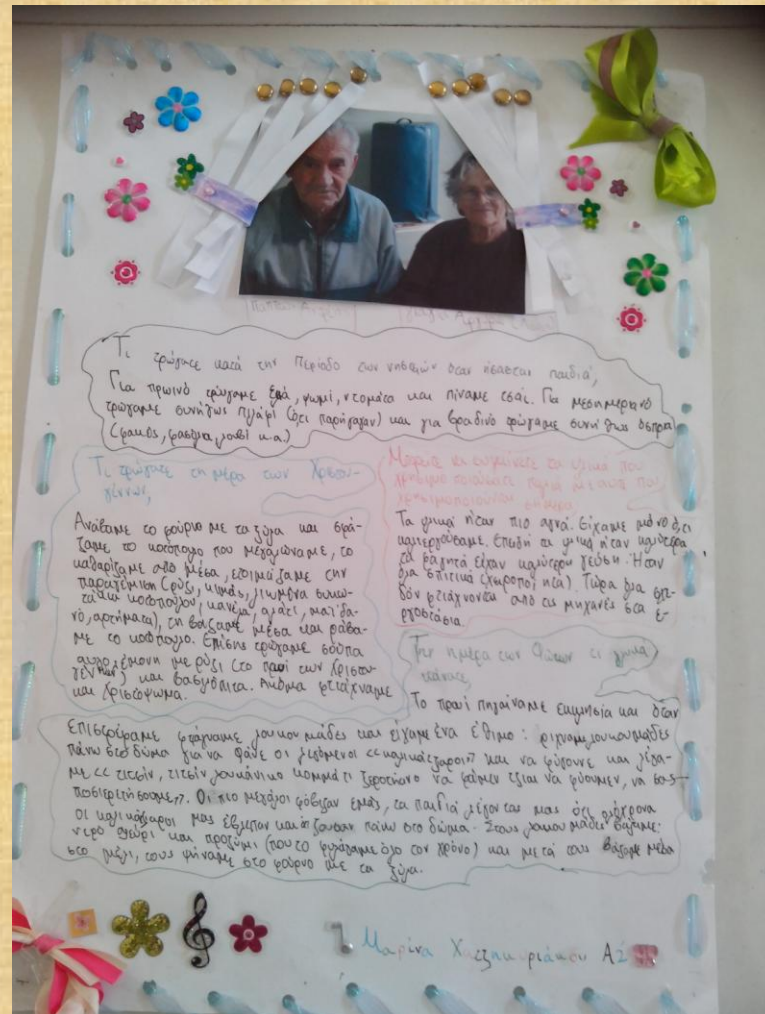 Παππού
Τι τρώγατε κατά την περίοδο των νηστειών όταν ήσασταν παιδιά;
Για πρωινό τρώγαμε ελιά, ψωμί, ντομάτα και πίναμε τσάι. Για μεσημεριανό
τρώγαμε συνήθως πιλάφι (ότι παρήγαγαν) και για βραδινό τρώγαμε συνήθως όσπρια
(φακές, φασόλια, λουβί κ.α.)
Τι τρώγατε τη μέρα των Χριστου-
γέννων;
Ανάβαμε το φούρνο με τα ξύλα και σφά-
ζαμε το κοτόπουλο που μεγαλώναμε, το
καθαρίζαμε από μέσα, ετοιμάζαμε την
παραγέμιση (ρύζι, κιμάς, λιωμένα συκω-
τάκια κοτόπουλου, κανέλα, αλάτι, μαϊδα-
νό, αρτήματα), τη βάζαμε μέσα και ράβα-
με το κοτόπουλο. Επίσης τρώγαμε σούπα
αυγολέμονη με ρύζι (το πρωί των Χριστου-
γέννων) και βασιλόπιτα. Ακόμα φτιάχναμε
και Χριστόψωμα.
Μπορείτε να συγκρίνετε τα υλικά που
χρησιμοποιούσατε παλιά με αυτά που
χρησιμοποιούνται σήμερα;
Τα υλικά ήταν πιο αγνά. Είχαμε μόνο ό,τι
καλιεργούσαμε. Επειδή τα υλικά ήταν καλύτερα
τα φαγητά είχαν καλύτερη γεύση. Ήταν
όλα σπιτικά (χειροποίητα). Τώρα όλα σχε-
δόν φτιάχνονται από τις μηχανές στα ε-
ργοστάσια.
Την ημέρα των Φώτων τι γλυκά
κάνατε;
Το πρωί πηγαίναμε εκκλησία και όταν
επιστρέφαμε φτιάχναμε λουκουμάδες και είχαμε ένα έθιμο: ρίχναμε λουκουμάδες
πάνω στο δώμα για να φάνε οι λεγόμενοι <<καλικάτζαροι>> και να φύγουνε και λέγα-
με << τιτσίν, τιτσίν λουκάνικο κομμάτι ξεροτήανο να φάτε τζιαι να φύουμεν, να σας
ποσιερετήσουμε>>. Οι πιο μεγάλοι φόβιζαν εμάς, τα παιδιά λέγοντας μας ότι
οι καλικάτζαροι μας έβλεπαν και άκουαν πάνω στο δώμα. Στους λουκουμάδες βάζαμε:
νερό αλεύρι και προζύμι (που το φυλάγαμε όλο τον χρόνο) και μετά τους βάζαμε μέσα
στο μέλι, τους ψήναμε στο φούρνο με τα ξύλα.
Μαρίνα Χατζηκυριάκου Α2